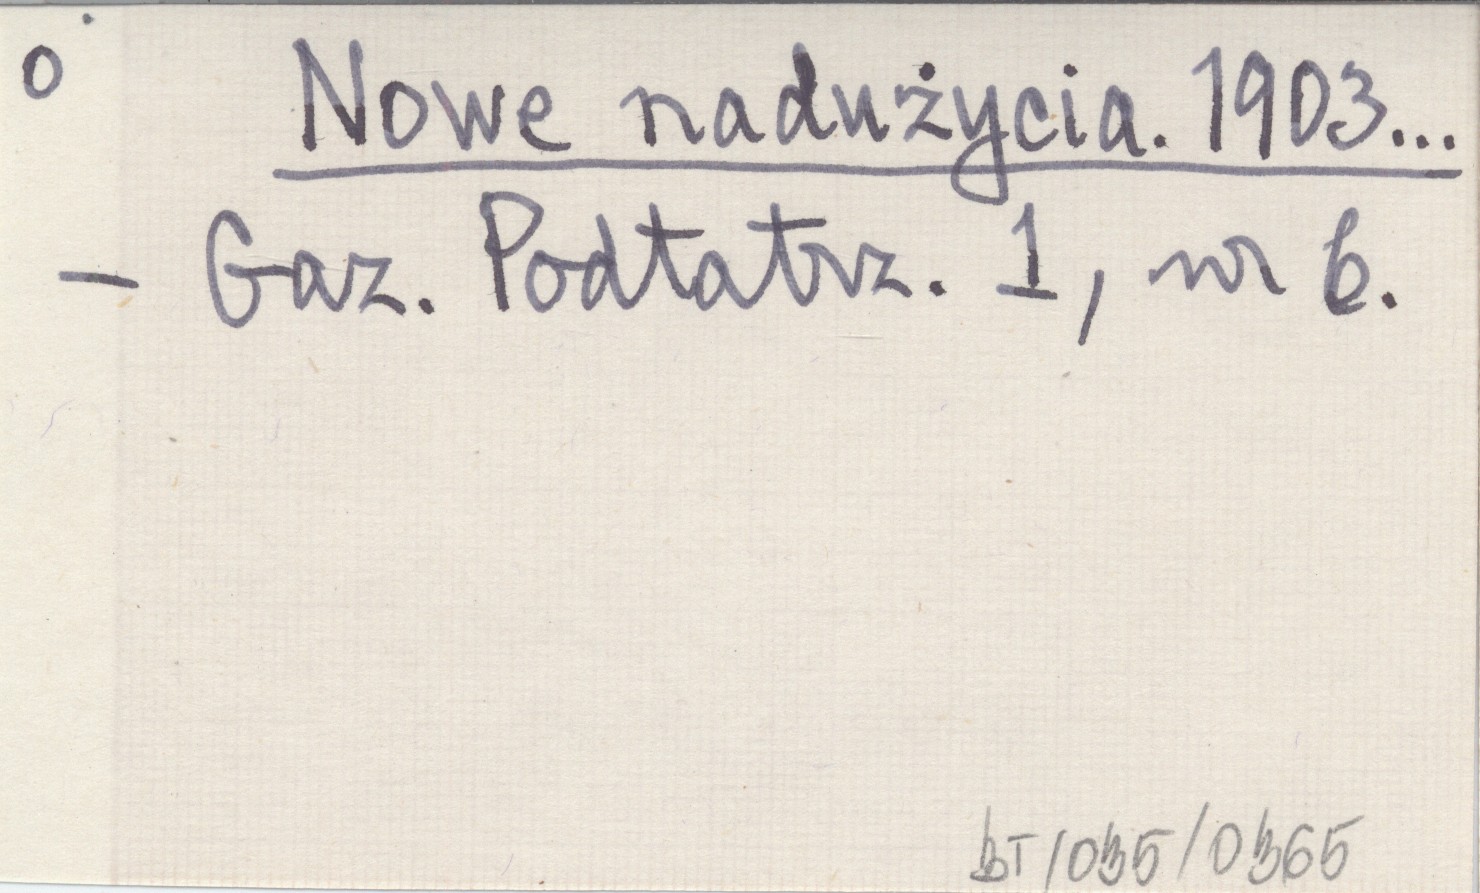 o Nowe nadużycia. 1903...
— Gaz. Podtatrz. 1, nr 6.
BT/035/0365